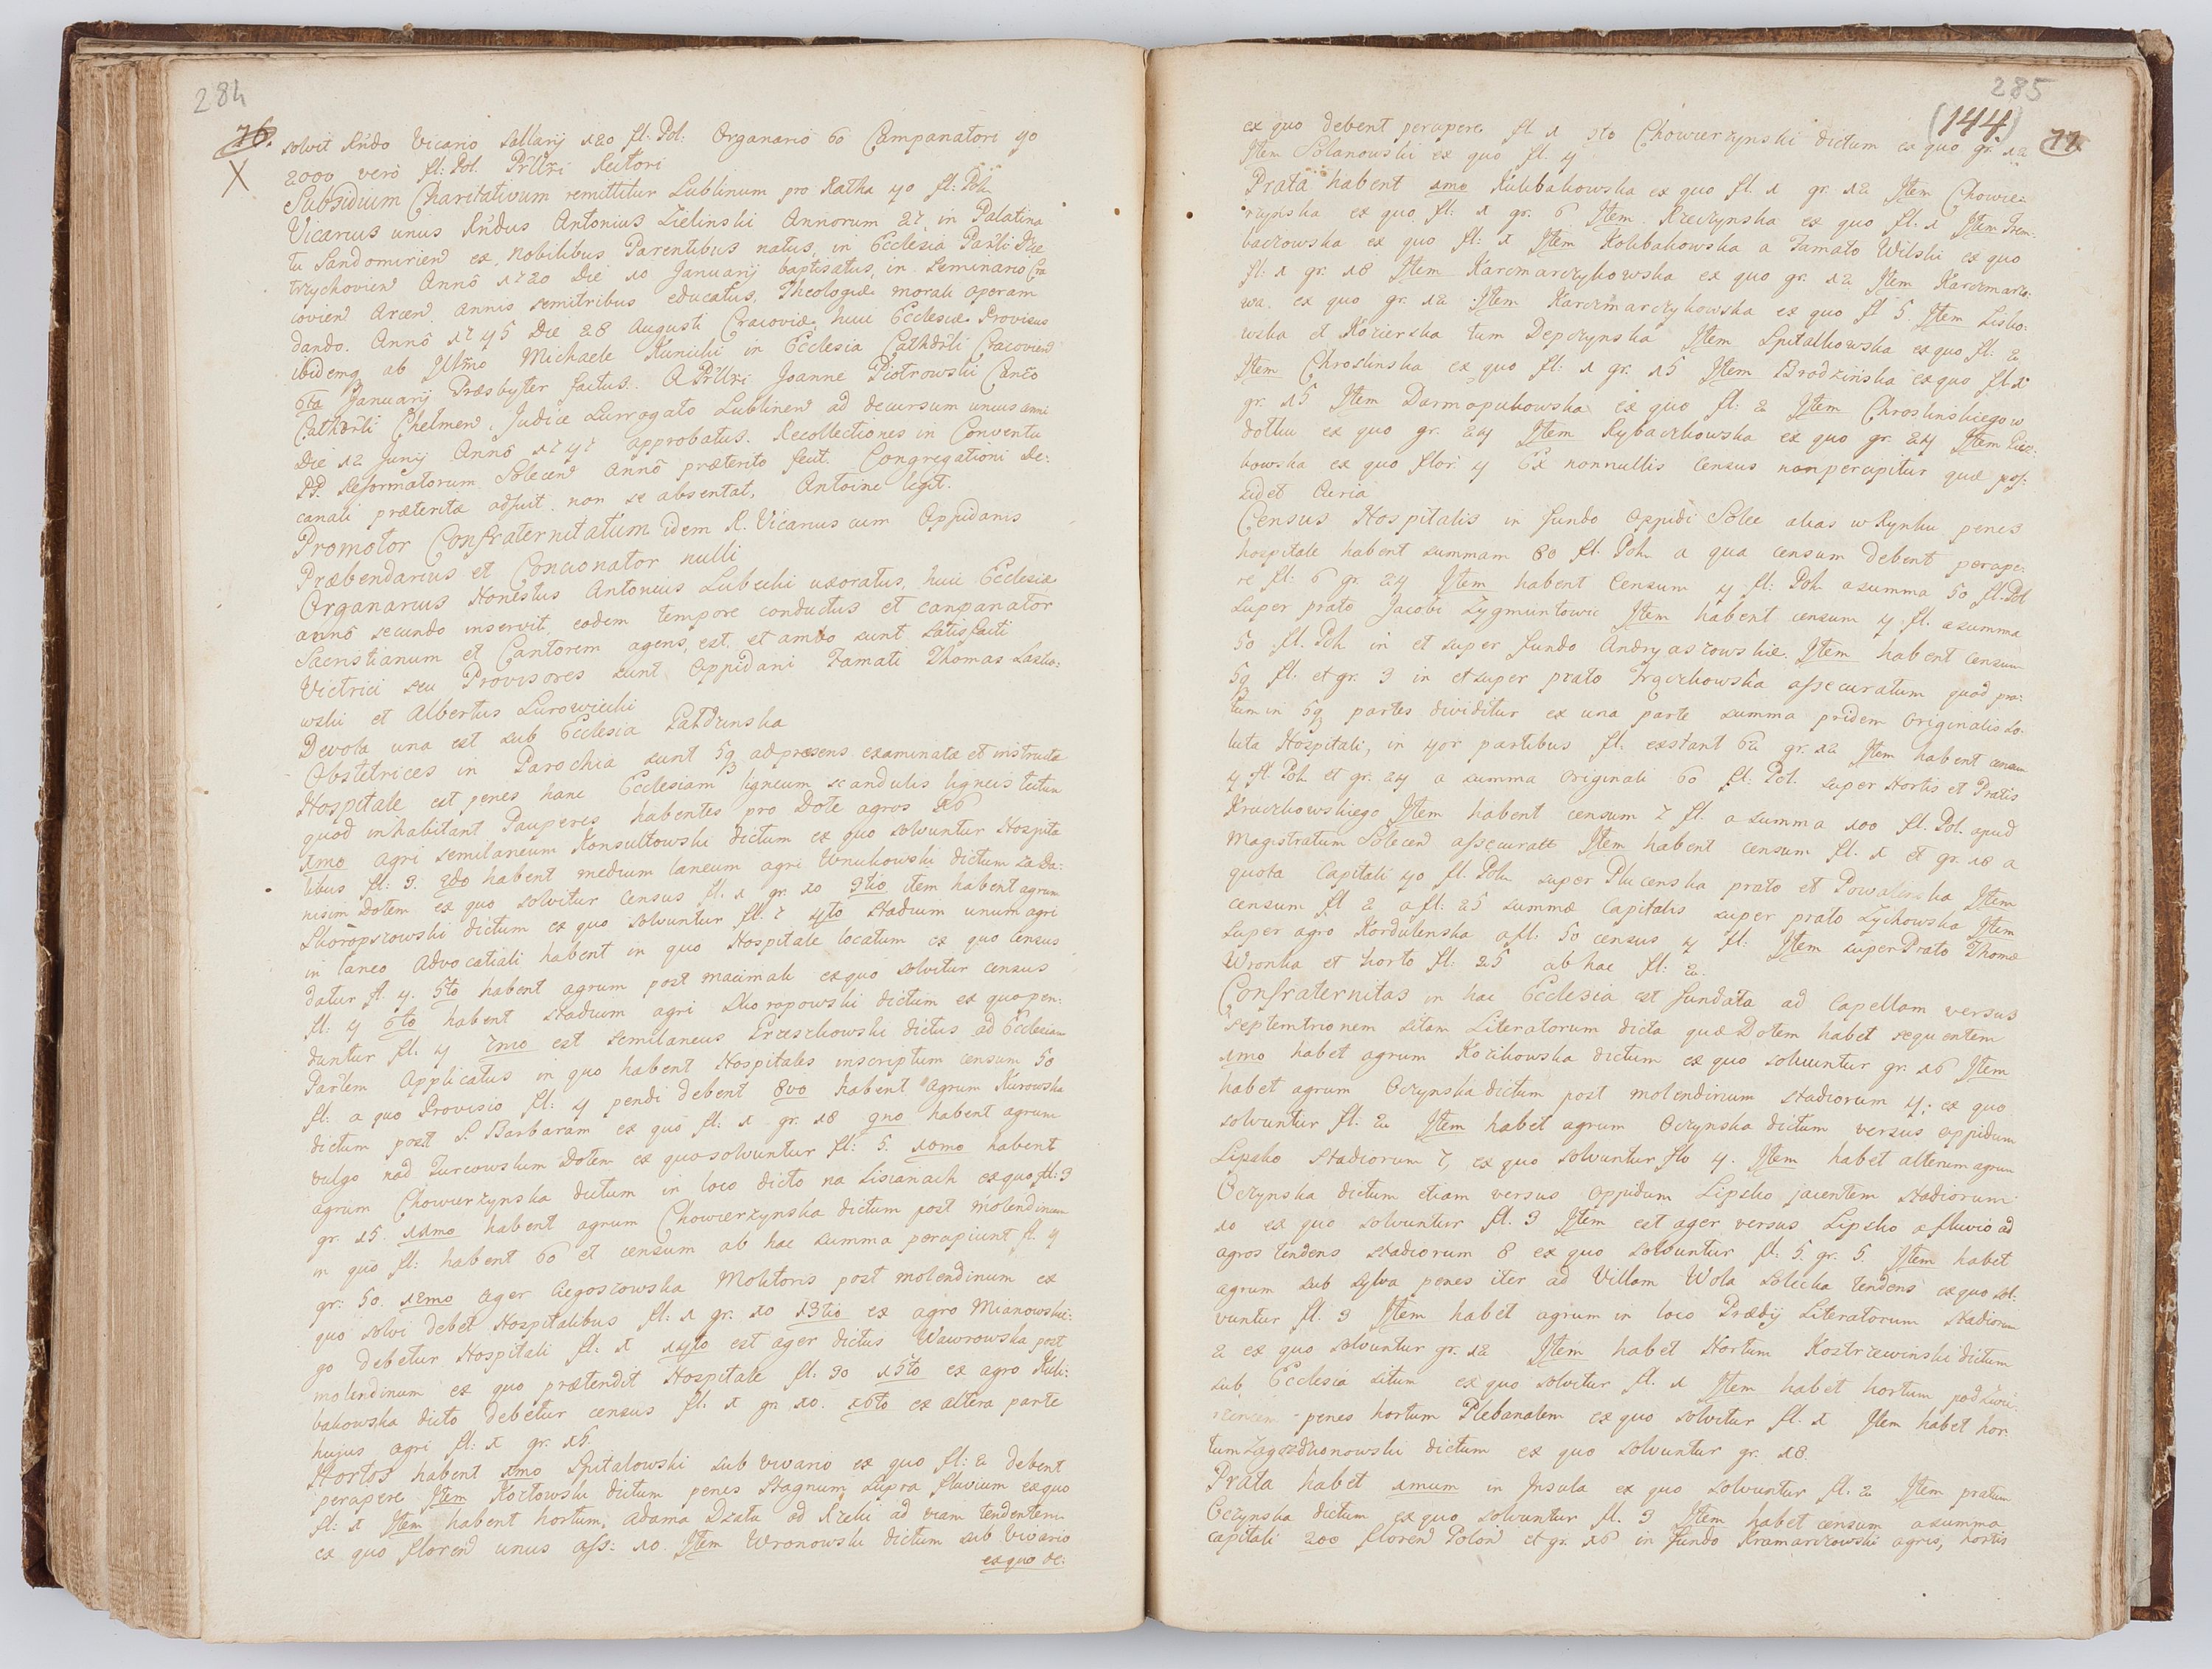 284
76.
X
solvit Rndo Vicario Sallarij 120 fl: Pol: Organario 60 Campanatori 40
2000 verò fl: Pol. Rectori
Subsidium Charitativum remittitur Lublinum pro Ratha 40 fl: Pol:
Vicarius unus Rndus Antonius Zielinski Annorum 27 in Palatina
tu Sandomirien ex Nobilibus Parentibus natus, in Ecclesia
trzychovien Annô 1720 Die 10 Januarij baptisatus, in Seminario Cra
covien Arcen annis semitribus educatus, Theologiæ morali operam
dando. Annô 1745 Die 28 Augusti Cracoviæ, huic Ecclesiæ Provisus
ibidemq ab Illmo Michaele Kunicki in Ecclesia Cathdrli Cracovien
6ta Januarij Præsbyter factus. A Joanne Piotrowski Canco
Cathdrli Chelmen, Judice Surrogato Lublinen ad decursum unius anni
Die 12 Junij Annô 1747 approbatus. Recollectiones in Conventu
PP. Reformatorum Solecen annô præterito fecit. Congregationi De:
canali præteritæ adfuit, non se absentat, Antoine legit.
Promotor Confraternitatum idem R. Vicarius cum Oppidanis
Præbendarius et Concionator nulli
Organarius Honestus Antonius Lubecki uxoratus, huic Ecclesiæ
annô secundo inservit, eodem tempore conductus et canpanator
Sacristianum et Cantorem agens, est, et ambo sunt satisfacti
Victrici seu Provisores sunt Oppidani Famati Thomas Lasko:
wski et Albertus Surowiecki
Devota una est sub Ecclesia Gazdzinska
Obstetrices in Parochia sunt 5q ad præsens examinatæ et instructæ
Hospitale est penes hanc Ecclesiam ligneum scandulis ligneis tectum
quod inhabitant Pauperes habentes pro Dote agros 16
1mo agri semilaneum Konsultowski dictum ex quo solvuntur Hospita
libus fl: 3. 2do habent medium laneum agri Wnukowski dictum
nisim Dotem ex quo solvitur census fl. 1 gr. 10 3tio item habent agrum
Skoropszowski dictum ex quo solvuntur fl. 7 4to stadium unum agri
in laneo Advocatiali habent in quo Hospitale locatum ex quo Census
datur fl. 4. 5to habent agrum post macimale ex quo solvitur census
fl: 4 6to habent stadium agri Skoropowski dictum ex quo pen:
duntur fl: 4 7mo est semilaneus Grzeszkowski dictus ad Ecclesiam
Applicatus in quo habent Hospitales inscriptum censum 50
fl: a quo Provisio fl: 4 pendi debent 8vo habent agrum Kurowska
dictum post S. Barbaram ex quo fl: 1 gr. 18 9no habent agrum
vulgo nad Gurcowskim Dotem ex quo solvuntur fl: 5. 10mo habent
agrum Chowierzynska dictum in loco dicto na Lisianach ex quo fl: 3
gr. 15. 11mo habent agrum Chowierzynska dictum post molendinum
in quo fl: habent 60 et censum ab hac summa percipiunt fl. 4
gr: 50. 12mo ager Cegoszowska Molitoris post molendinum ex
quo solvi debet Hospitalibus fl: 1 gr. 10 13tio ex agro Mianowskie:
go debetur Hospitali fl: 1 14to est ager dictus Wawrowska post
molendinum ex quo prætendit Hospitale fl. 30 15to ex agro Kuli:
bakowska dicto debetur census fl. 1 gr 10. 16to ex altera parte
hujus agri fl: 1 gr. 15.
Hortos habent 1mo Spitalowski sub vivario ex quo fl: 2 debent
percipere Item Koctowski dictum penes stagnum, supra fluvium ex quo
fl: 1 Item habent hortum, Adama Dzata od Rzeki ad viam tendentem
ex quo floren unus ass: 10. Item Wronowski dictum sub Vivario
ex quo de:
285
(144.)
77.
ex quo debent percipere fl 1 5to Chowierzynski dictum ex quo gr. 12
Item Solanowski ex quo fl. 4
Prata habent 1mo Kulibakowska ex quo fl. 1 gr. 12 Item Chowie:
rzynska ex quo fl: 1 gr. 6 Item Rzeczynska ex quo fl: 1 Item Trem:
baczowska ex quo fl: 1 Item Kolibakowska a Famato Wilski ex quo
fl: 1 gr. 18 Item Karcmarczykowska ex quo gr. 12 Item Karczmarzo:
wa ex quo gr. 12 Item Karczmarczykowska ex quo fl 5. Item Lisko:
wska et Kozierska tum Depczynska Item Spitalkowska ex quo fl: 2
Item Chroslinska ex quo fl: 1 gr. 15 Item Brodzinska ex quo fl. 1
gr. 15 Item Darmopukowska ex quo fl: 2 Item Chroslinskiego w
dolku ex quo gr. 24 Item Rybaczkowska ex quo gr. 24 Item
kowska ex quo flor. 4 Ex nonnullis Census non percipitur quæ pos:
sidet Curia
Census Hospitalis in fundo Oppidi Solec alias w Rynku penes
hospitale habent summam 80 fl. Pol. a qua censum debent percipe:
re fl: 6 gr. 24 Item habent Censum 4 fl: Pol. a summa 50 fl. Pol
super prato Jacobi Zygmuntowic Item habent censum 4 fl. a summa
50 fl. Pol. in et super fundo Andryaszowskie. Item habent Censum
5q fl. et gr. 3 in et super prato Frączkowska assecuratum quod pra:
tum in 5q partes dividitur ex una parte summa pridem Originalis so:
luta Hospitali, in 4or partibus fl. exstant 62 gr. 12 Item habent censum
4 fl. Pol. et gr. 24 a summa Originali 60 fl. Pol. super Hortis et Pratis
Kruczkowskiego Item habent censum 7 fl. a summa 100 fl. Pol. apud
Magistratum Solecen assecurat Item habent censum fl. 1 et gr. 18 a
quota Capitali 40 fl. Pol. super Plucenska prato et Powalinska Item
censum fl 2 a fl: 25 summæ Capitalis super prato Zychowska Item
super agro Kordulenska a fl. 50 census 4 fl: Item super Prato Thomæ
Wronka et horto fl: 25 ab hac fl: 2.
Confraternitas in hac Ecclesia est fundata ad Capellam versus
Septemtrionem sitam Literatorum dicta quæ Dotem habet sequentem
1mo habet agrum Kozikowska dictum ex quo solvuntur gr. 16 Item
habet agrum Oczynska dictum post molendinum stadiorum 4, ex quo
solvuntur fl. 2 Item habet agrum Oczynska dictum versus oppidum
Lipsko Stadiorum 7, ex quo solvuntur flo 4. Item habet alterum agrum
Oczynska dictum etiam versus oppidum Lipsko jacentem stadiorum
10 ex quo solvuntur fl. 3 Item est ager versus Lipsko a fluvio ad
agros tendens stadiorum 8 ex quo solvuntur fl: 5. gr. 5. Item habet
agrum sub sylva penes iter ad Villam Wola Solecka tendens ex quo sol:
vuntur fl. 3 Item habet agrum in loco Prædij Literatorum stadiorum
2 ex quo solvuntur gr. 12 Item habet Hortum Kostrzewinski dictum
sub Ecclesia situm ex quo solvitur fl. 1 Item habet hortum
penes hortum Plebanalem ex quo solvitur fl. 1 Item habet hor
tum Zagozdzionowski dictum ex quo solvuntur gr. 18.
Prata habet 1mum in Insula ex quo solvuntur fl. 2 Item pratum
Oczynska dictum ex quo solvuntur fl. 3 Item habet censum a summa
capitali 200 floren Polon et gr. 16 in fundo Kramarczowski agris, hortis